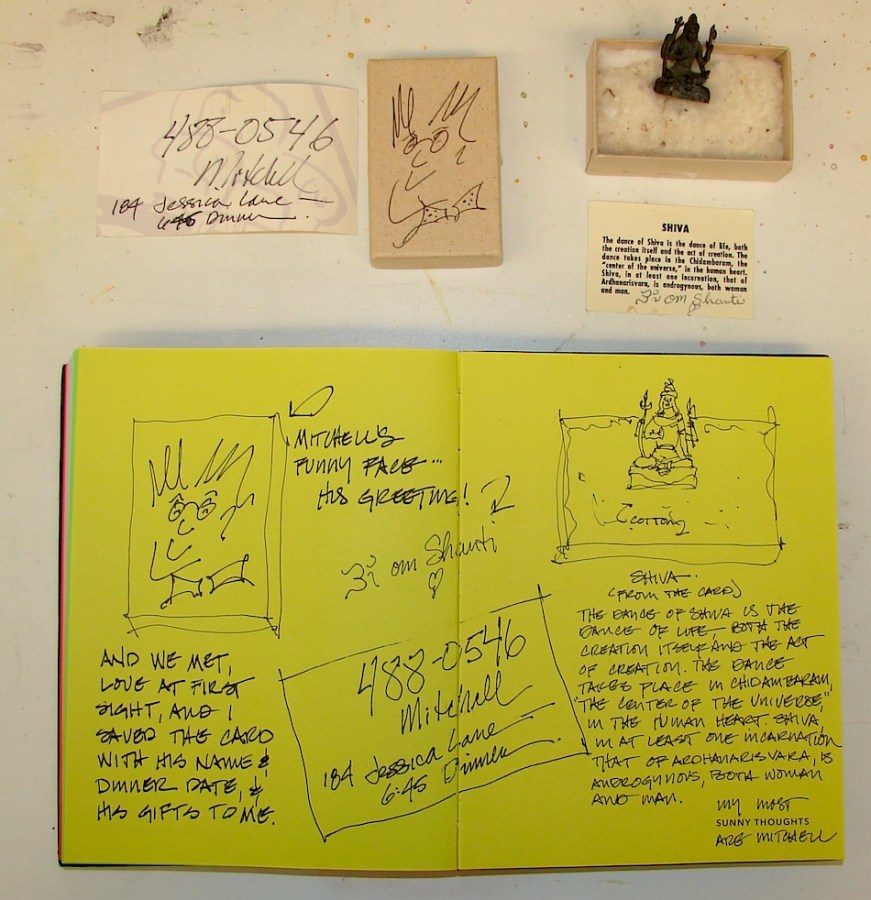 488-0546
Mitchell
184 Jessica Lane —
6:45 Dinner.
SHIVA
The dance of Shiva is the dance of life, both
the creation itself and the act of creation. The
dance takes place in the Chidambaram, the
"center of the universe," in the human heart.
Shiva, in at least one incarnation, that of
Ardhanarisvara, is androgynous, both woman
and man.
ॐ om Shanti
MITCHELL'S
FUNNY FACE...
HIS GREETING!
ॐ om Shanti
AND WE MET,
LOVE AT FIRST
SIGHT, AND I
SAVED THE CARD
WITH HIS NAME &
DINNER DATE, &
HIS GIFTS TO ME.
488-0546
Mitchell
184 Jessica Lane —
6:45 Dinner.
COTTON
SHIVA.
(FROM THE CARD)
THE DANCE OF SHIVA IS THE
DANCE OF LIFE, BOTH THE
CREATION ITSELF AND THE ACT
OF CREATION. THE DANCE
TAKES PLACE IN CHIDAMBARAM,
"THE CENTER OF THE UNIVERSE,"
IN THE HUMAN HEART. SHIVA,
IN AT LEAST ONE INCARNATION
THAT OF ARDHANARISVARA, IS
ANDROGYNOUS, BOTH WOMAN
AND MAN.
MY MOST
SUNNY THOUGHTS
ARE MITCHELL